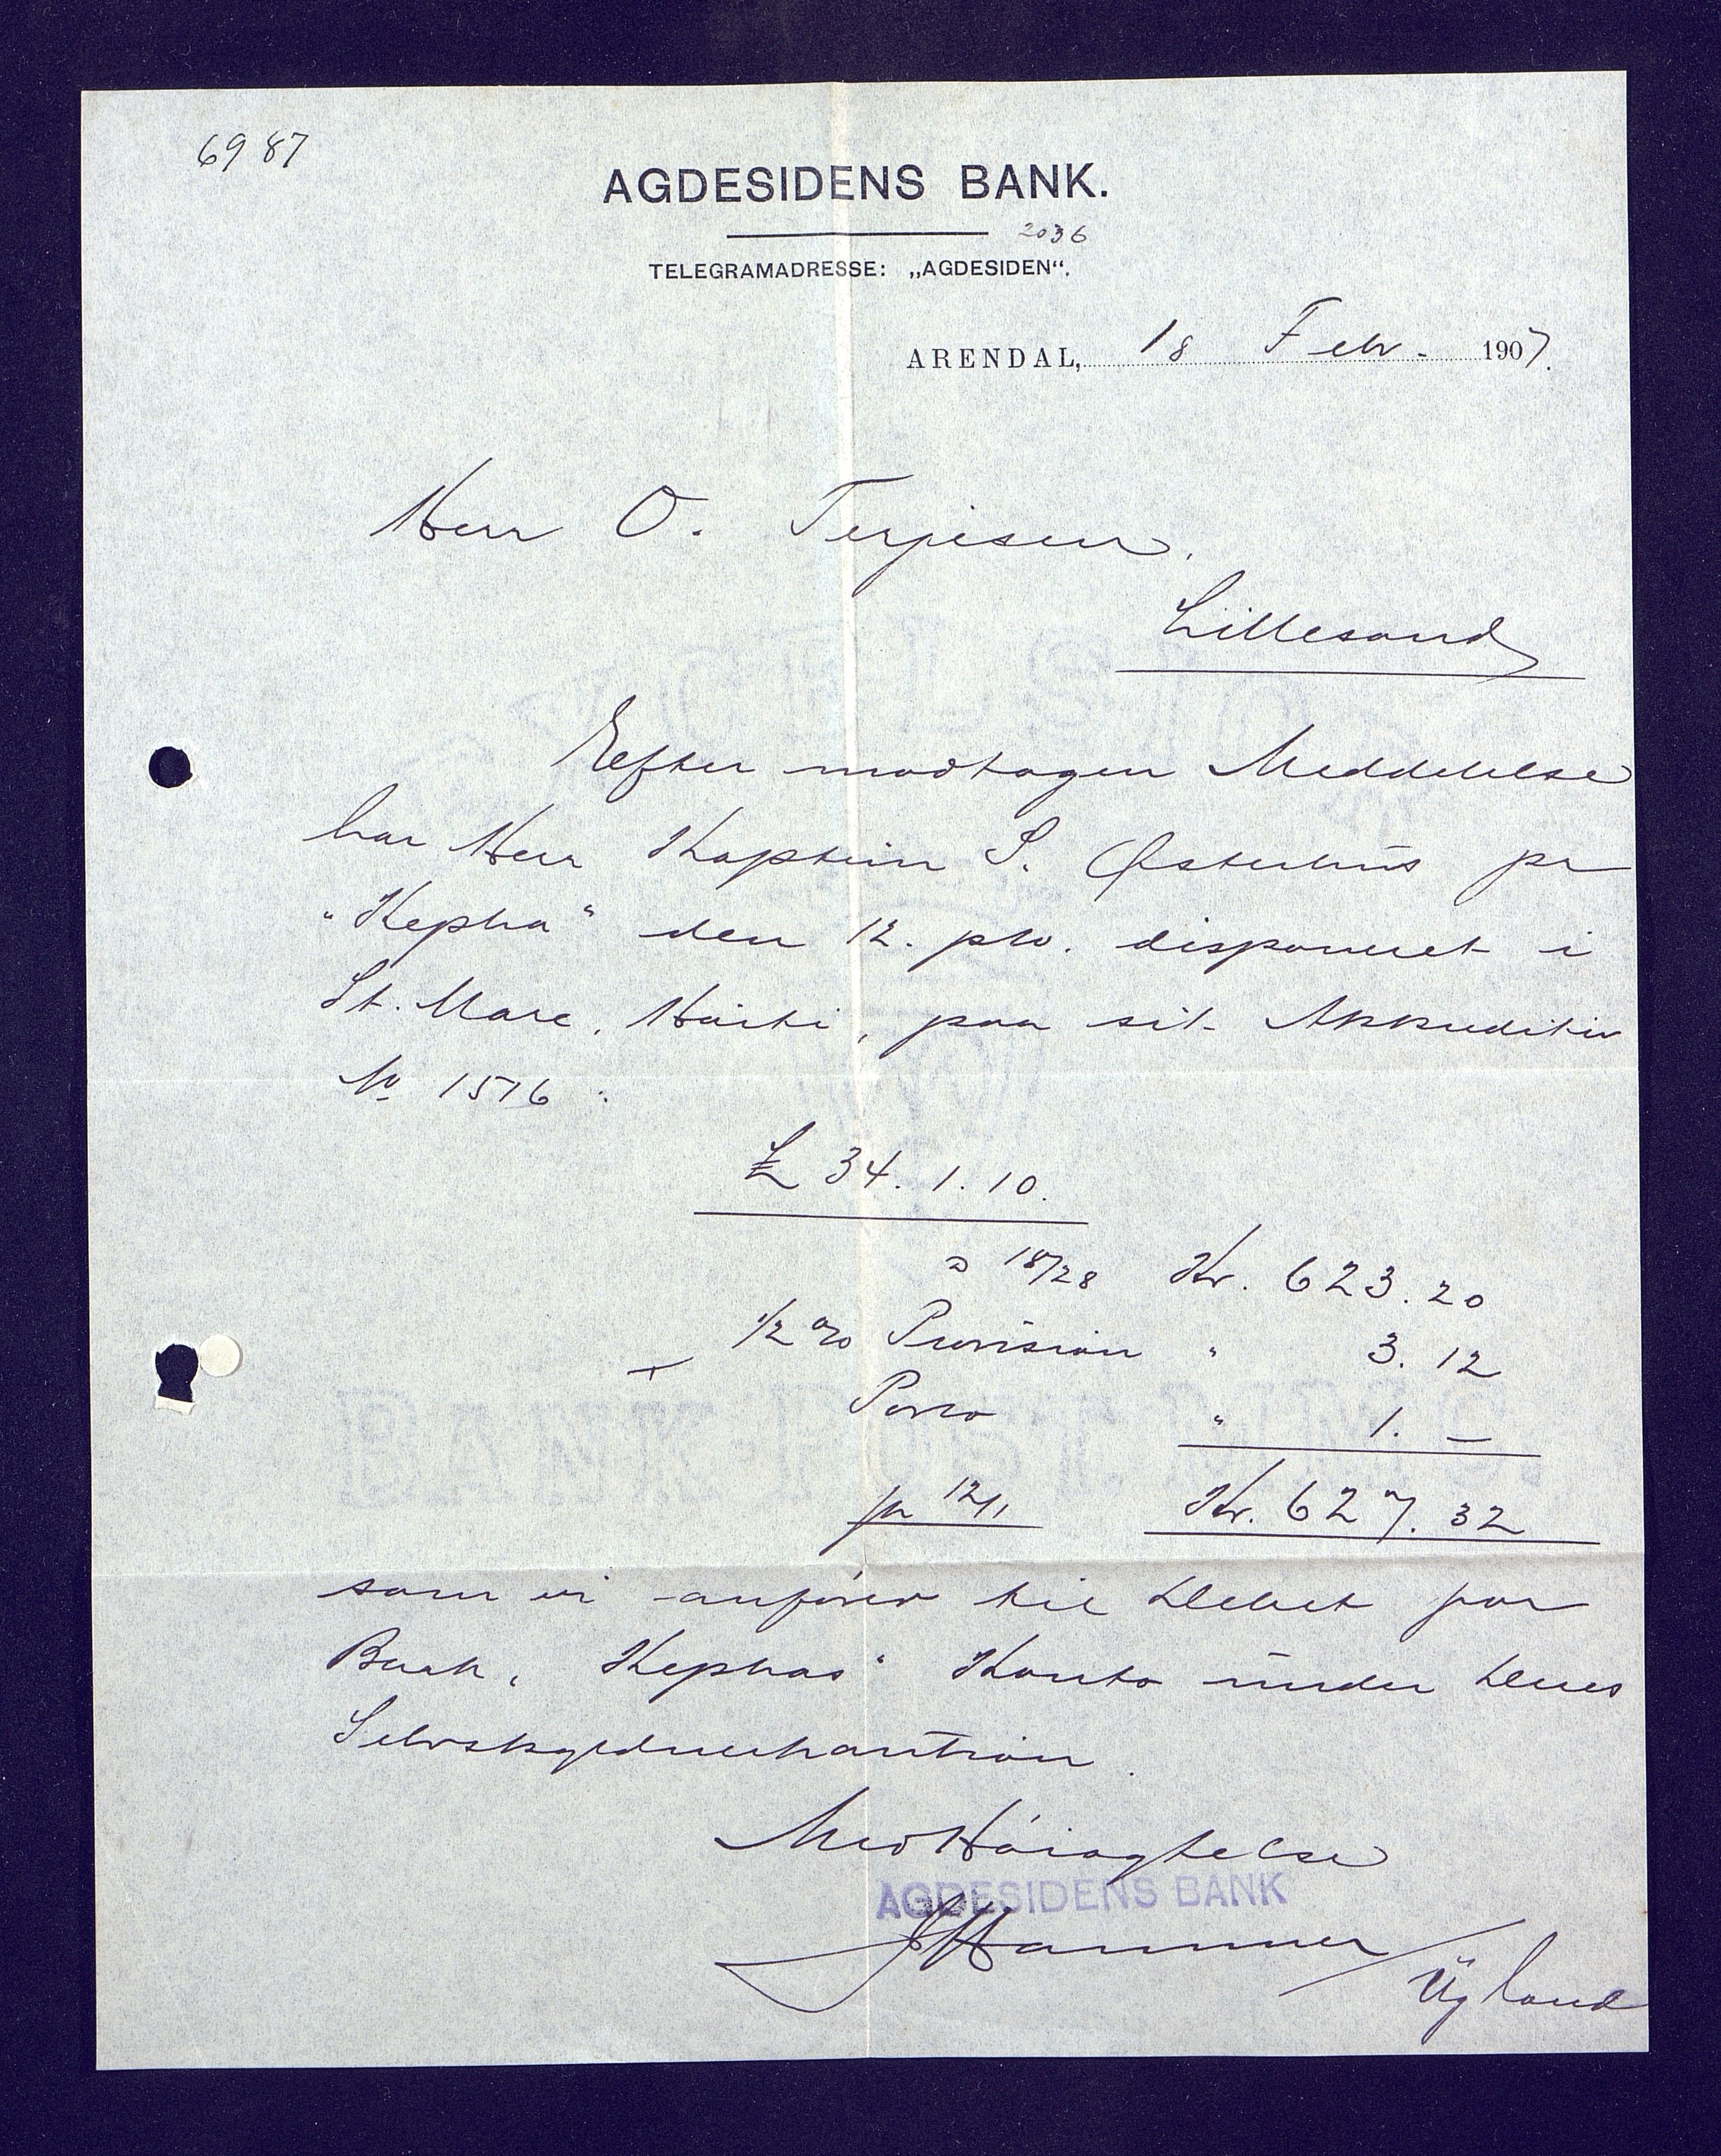 6987
AGDESIDENS BANK.
2036
TELEGRAMADRESSE: „AGDESIDEN“.
ARENDAL, 18 Febr. 1907.
Herr O. Terjesen.
Lillesand
Efter modtagen Meddelelse
har Herr Kaptein S. Østerhus pr
"Kepha" den 12. pto. disponeret i
St. Marc, Haiti, paa sit Akkreditiv
No 1516:
£ 34. 1. 10.
a 18/28 Kr. 623.20
1/2 % Provision " 3.12
Porto " 1. —
pr 12/1 Kr. 627.32
som vi anfører til Debet for
Bark "Kephas" Konto under Deres
Selvskyldnerkaution.
Med Høiagtelse
AGDESIDENS BANK
JHammer / Ugland